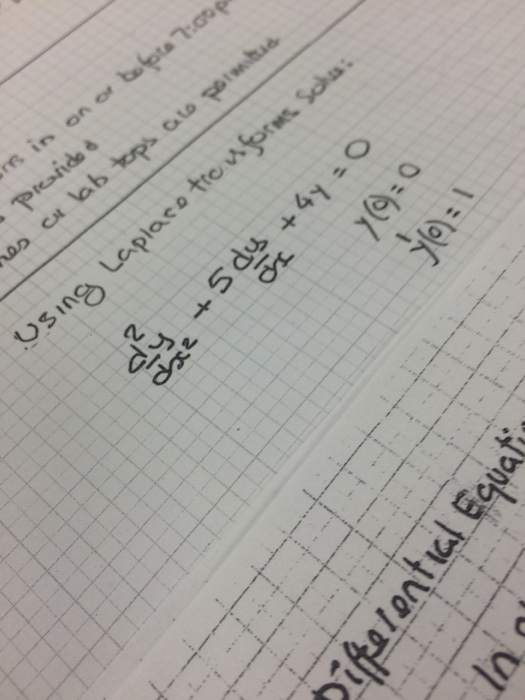 in on or before 7:00p
provided
or lab tops are permitted
Using Laplace transforms solve:
d²y/dx² + 5 dy/dx + 4y = 0
y(0) = 0
y'(0) = 1
Differential Equati
In